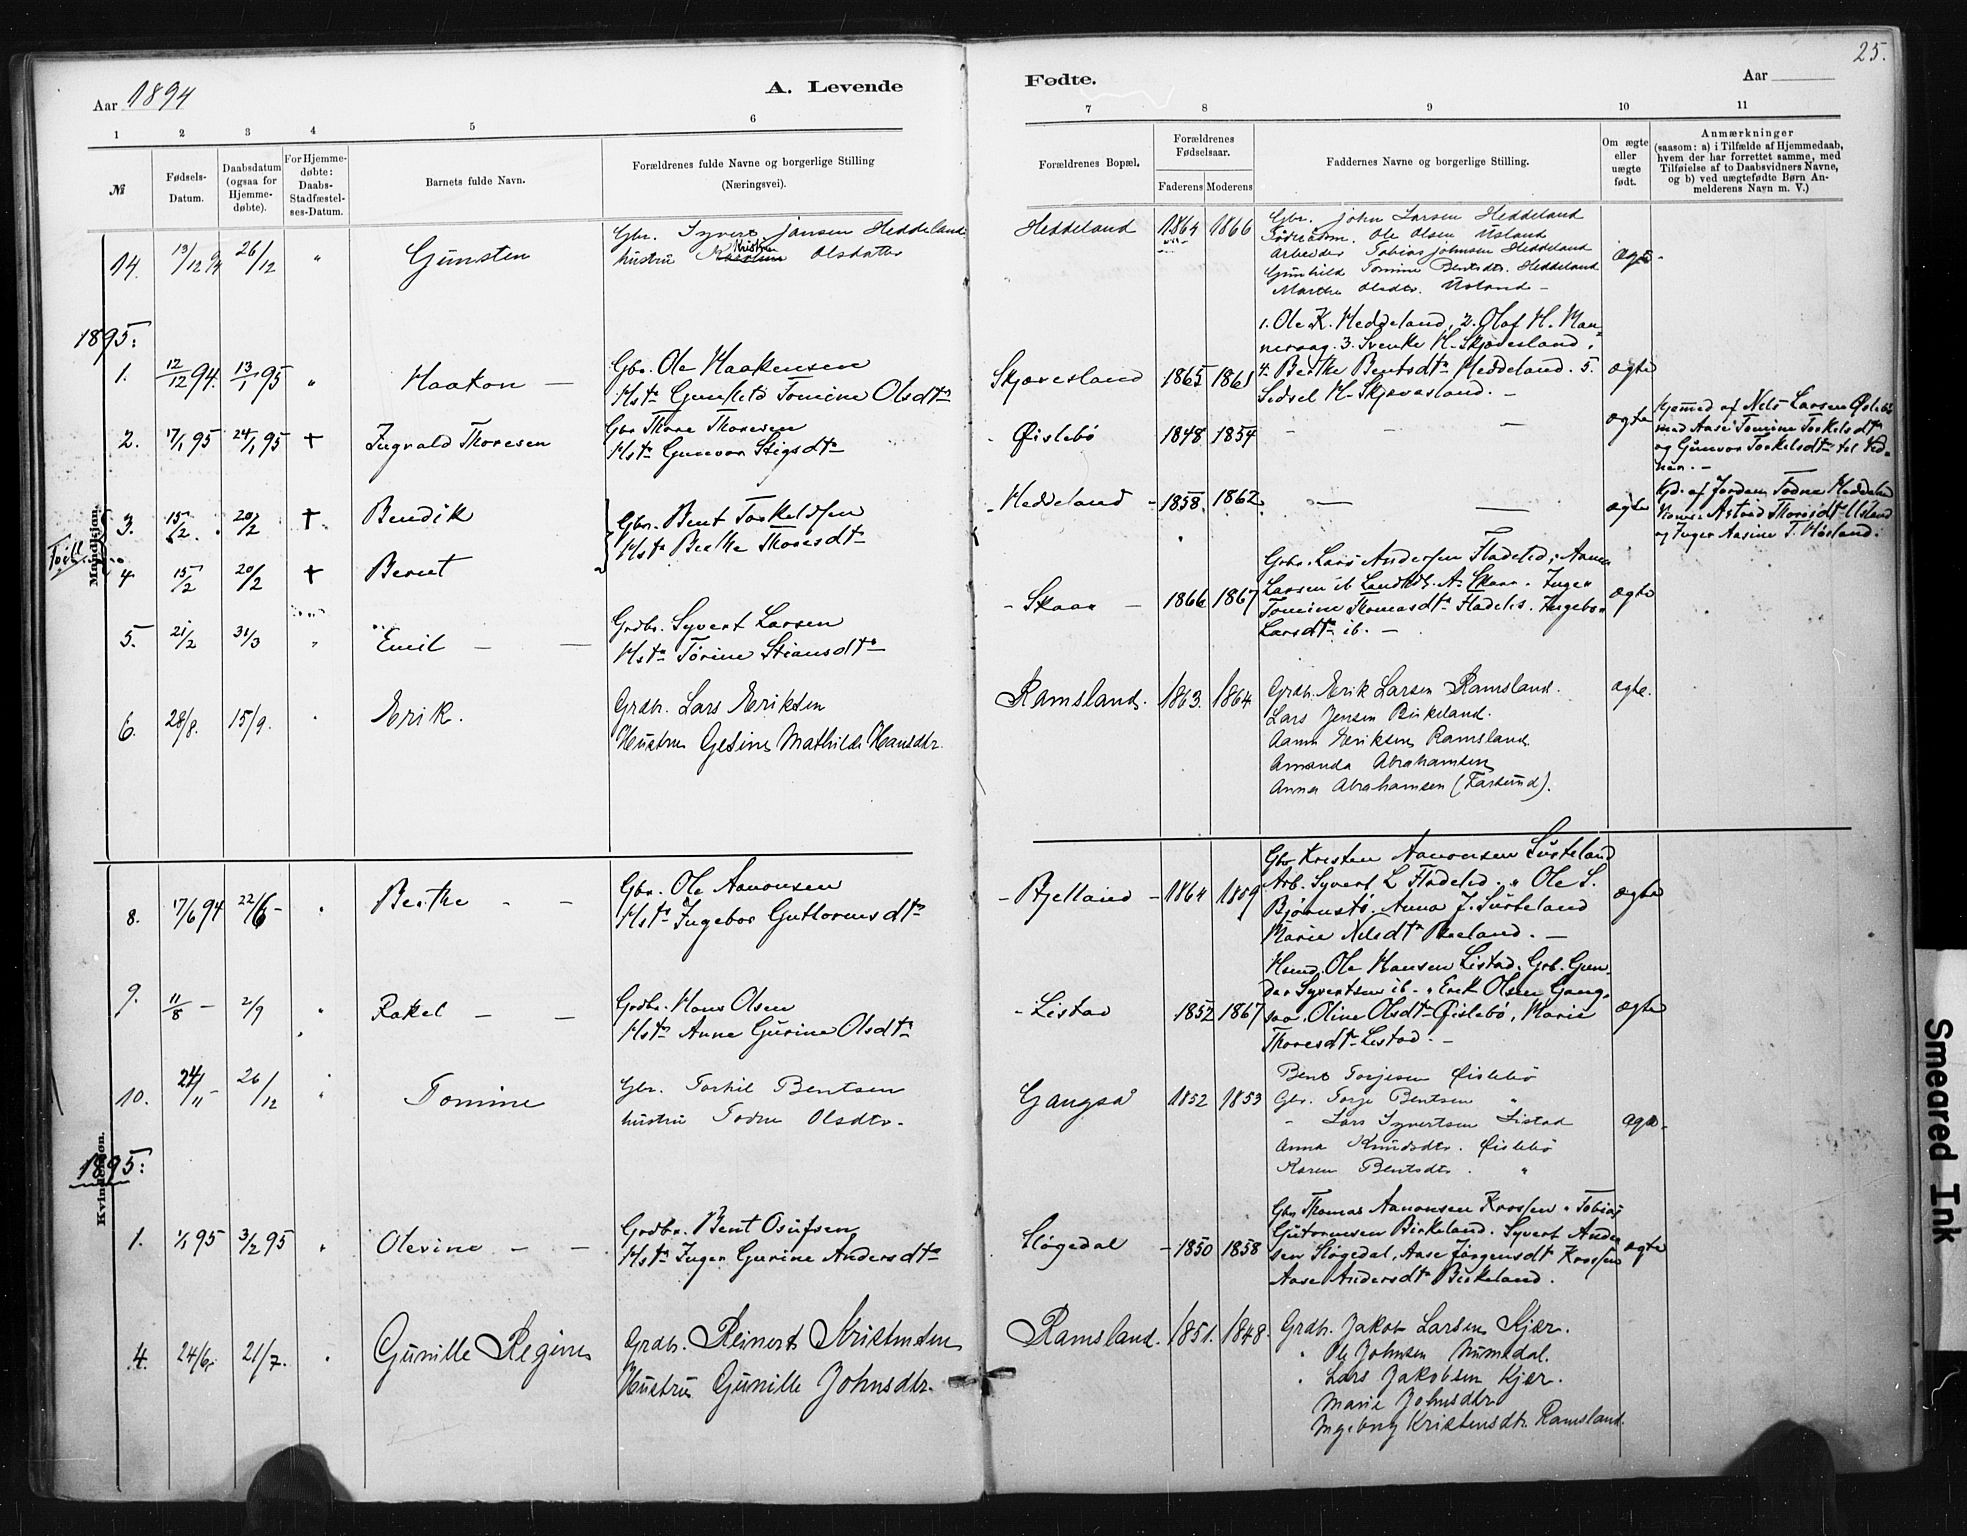 25.
Aar 1894
A. Levende
Fødte.
Aar
1 2 3 4 5 6 7 8 9 10 11
№
Fødsels-Datum.
Daabsdatum (ogsaa for Hjemmedøbte).
For Hjemmedøbte: Daabs-Stadfæstelses-Datum.
Barnets fulde Navn.
Forældrenes fulde Navne og borgerlige Stilling (Næringsvei).
Forældrenes Bopæl.
Forældrenes Fødselsaar.
Faderens Moderens
Faddernes Navne og borgerlige Stilling.
Om ægte eller uægte født.
Anmærkninger
(saasom: a) i Tilfælde af Hjemmedaab, hvem der har forrettet samme, med Tilføielse af to Daabsvidners Navne, og b) ved uægtefødte Børn Anmelderens Navn m. V.)
14. 13/12 94 26/12 " Gunsten
Gbr. Syvert Jansen Heddeland
hustru Kristine Olsdatter
Heddeland 1864 1866
Gbr. John Larsen Heddeland
Ole Olsen Usland
Arbeider Tobias Johnsen Heddeland
Gunhild Tomine Bentsdtr. Heddeland
Marthe Olsdtr. Usland –
ægte
1895:
Mandkjøn.
1. 12/12 94. 13/1 95 " Haakon –
Gbr. Ole Haakensen
Hstr Gunhild Tomine Olsdtr
Skjævesland 1865 1861
1. Ole K. Heddeland, 2. Olaf H. Man-
neraag. 3. Svenke H. Skjævesland,
4. Berthe Bentsdtr Heddeland. 5.
Sidsel H. Skjævesland. –
ægte
2. 17/1 95 24/1 95 + Ingvald Thoresen
Gbr Thore Thoresen
Hstr Gunvor Stigsdtr
- Øislebø 1848 1854 – – –
ægte
Hjemmed af Nels Larsen Øislebø
med Aase Tomine Torkelsdtr
og Gunvor Torkelsdtr til Vid-
ner. –
3. 15/2. 20/2 + Bendik
Gbr. Bent Torkeldsen
Hstr Berthe Thoresdtr
- Heddeland - 1858. 1862. – –
ægte
Hjd. af Jordm. Todne Heddeland
Vidner Astrid Thoresdtr Usland
og Inger Aasine T. Høsland.
4 15/2 20/2 + Berent
5. 21/2 31/3 " Emil – –
Grdbr. Syvert Larsen
Hstr Torine Stiansdtr
- Skaar – 1866 1867
Grbr. Lars Andersen Fladelid, Aanen
Larsen ib Landhdl. A. Skaar. Inger
Tomine Thomasdtr Fladelid. Ingebor
Larsdtr ib. –
ægte
6. 28/8. 15/9. " Erik.
Grdbr. Lars Eriksen
Hustru Gesine Mathilde Hansdtr.
Ramsland. 1863. 1864
Grdbr. Erik Larsen Ramsland.
Lars Jensen Birkeland.
Aanen Eriksen Ramsland
Amanda Abrahamsen
Anna Abrahamsen (Farsund).
ægte.
Kvindekjøn.
8. 17/6 94 22/6 – " Berthe – –
Gbr. Ole Aanonsen
Hstr Ingebor Guttormsdtr
- Bjelland - 1864 1859
Gbr Kristen Aanonsen Surteland
Arb. Syvert L Fladelid. " Ole S.
Bjørnstø. Anna J. Surteland
Marie Nilsdtr Bueland. –
ægte
9. 11/8 – 2/9 " Rakel – –
Grdbr. Hans Olsen
Hstr Anne Gurine Olsdtr
- Listad 1852 1867
Husmd. Ole Hansen Listad. Grb. Gun-
der Syvertsen ib. " Erik Olsen Gang-
saa. Oline Olsdtr Øislebø, Marie
Thoresdtr Listad. –
ægte
10. 24/11 – 26/12 " Tomine
Gbr. Torkil Bentsen
hustru Todne Olsdtr.
Gangså 1852 1853
Bent Torjesen Øislebø
Gbr. Torje Bentsen "
" Lars Syvertsen Listad
Anna Knudsdtr. Øislebø
Karen Bentsdtr. "
ægte
1895:
1. 1/1 95 3/2 95 " Olevine – –
Grdbr. Bent Osufsen
Hstr Inger Gurine Andersdtr
Støgedal - 1850 1858
Gbr Thomas Aanonsen Krossen " Tobias
Guttormsen Birkeland. Syvert Ander
sen Støgedal, Aase Jørgensdt Krossen
Aase Andersdtr Birkeland.
ægte
4. 24/6. 21/7. " Gunille Regine
Grdbr. Reinert Kristensen
Hustru Gunille Johnsdtr.
Ramsland. 1851. 1848.
Grdbr. Jakob Larsen Kjær.
" Ole Johnsen Numedal.
" Lars Jakobsen Kjær.
Marie Johnsdtr
Ingeborg Kristensdtr. Ramsland.
Smeared Ink